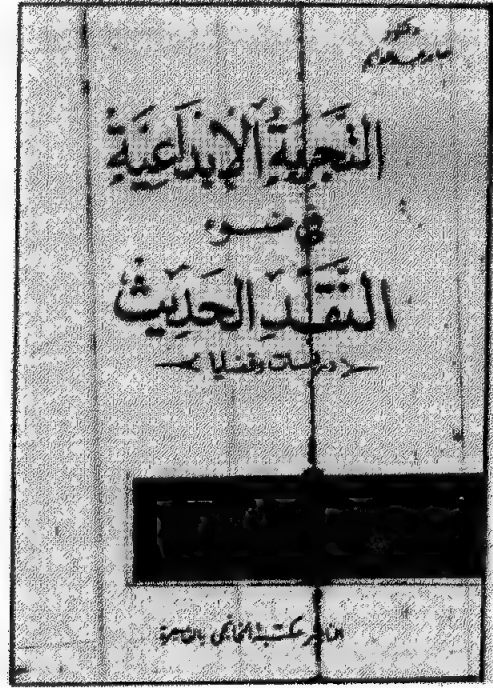 دكتور
صابر عبد الدايم
التجربة الإبداعية
في ضوء
النقد الحديث
دراسات وقضايا
الناشر مكتبة الخانجي بالقاهرة